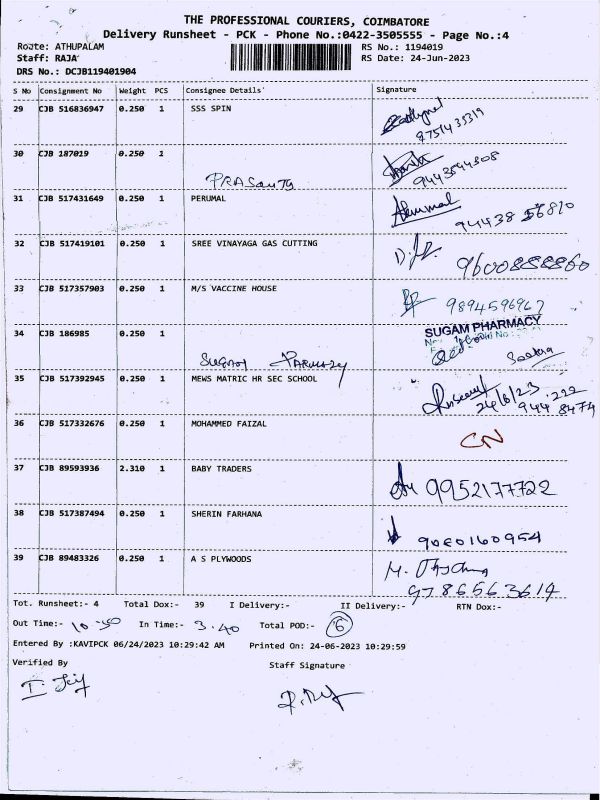 THE PROFESSIONAL COURIERS, COIMBATORE
Delivery Runsheet - PCK - Phone No.:0422-3505555 - Page No.:4
Route: ATHUPALAM RS No.: 1194019
Staff: RAJA RS Date: 24-Jun-2023
DRS No.: DCJB119401904
S No Consignment No Weight PCS Consignee Details Signature
29 CJB 516836947 0.250 1 SSS SPIN
8751435319
30 CJB 187019 0.250 1
PRASANTH 9443594308
31 CJB 517431649 0.250 1 PERUMAL Perumal
94438 56810
32 CJB 517419101 0.250 1 SREE VINAYAGA GAS CUTTING
9600888860
33 CJB 517357903 0.250 1 M/S VACCINE HOUSE
9894596967
34 CJB 186985 0.250 1 SUGAM PHARMACY
SUGAM PARMACY
35 CJB 517392945 0.250 1 MEWS MATRIC HR SEC SCHOOL
24/6/23 .222
944 8474
36 CJB 517332676 0.250 1 MOHAMMED FAIZAL CN
37 CJB 89593936 2.310 1 BABY TRADERS
9952177722
38 CJB 517387494 0.250 1 SHERIN FARHANA
9080160954
39 CJB 89483326 0.250 1 A S PLYWOODS
9786563614
Tot. Runsheet:- 4 Total Dox:- 39 I Delivery:- II Delivery:- RTN Dox:-
Out Time:- 10.50 In Time:- 3.40 Total POD:- 6
Entered By :KAVIPCK 06/24/2023 10:29:42 AM Printed On: 24-06-2023 10:29:59
Verified By Staff Signature